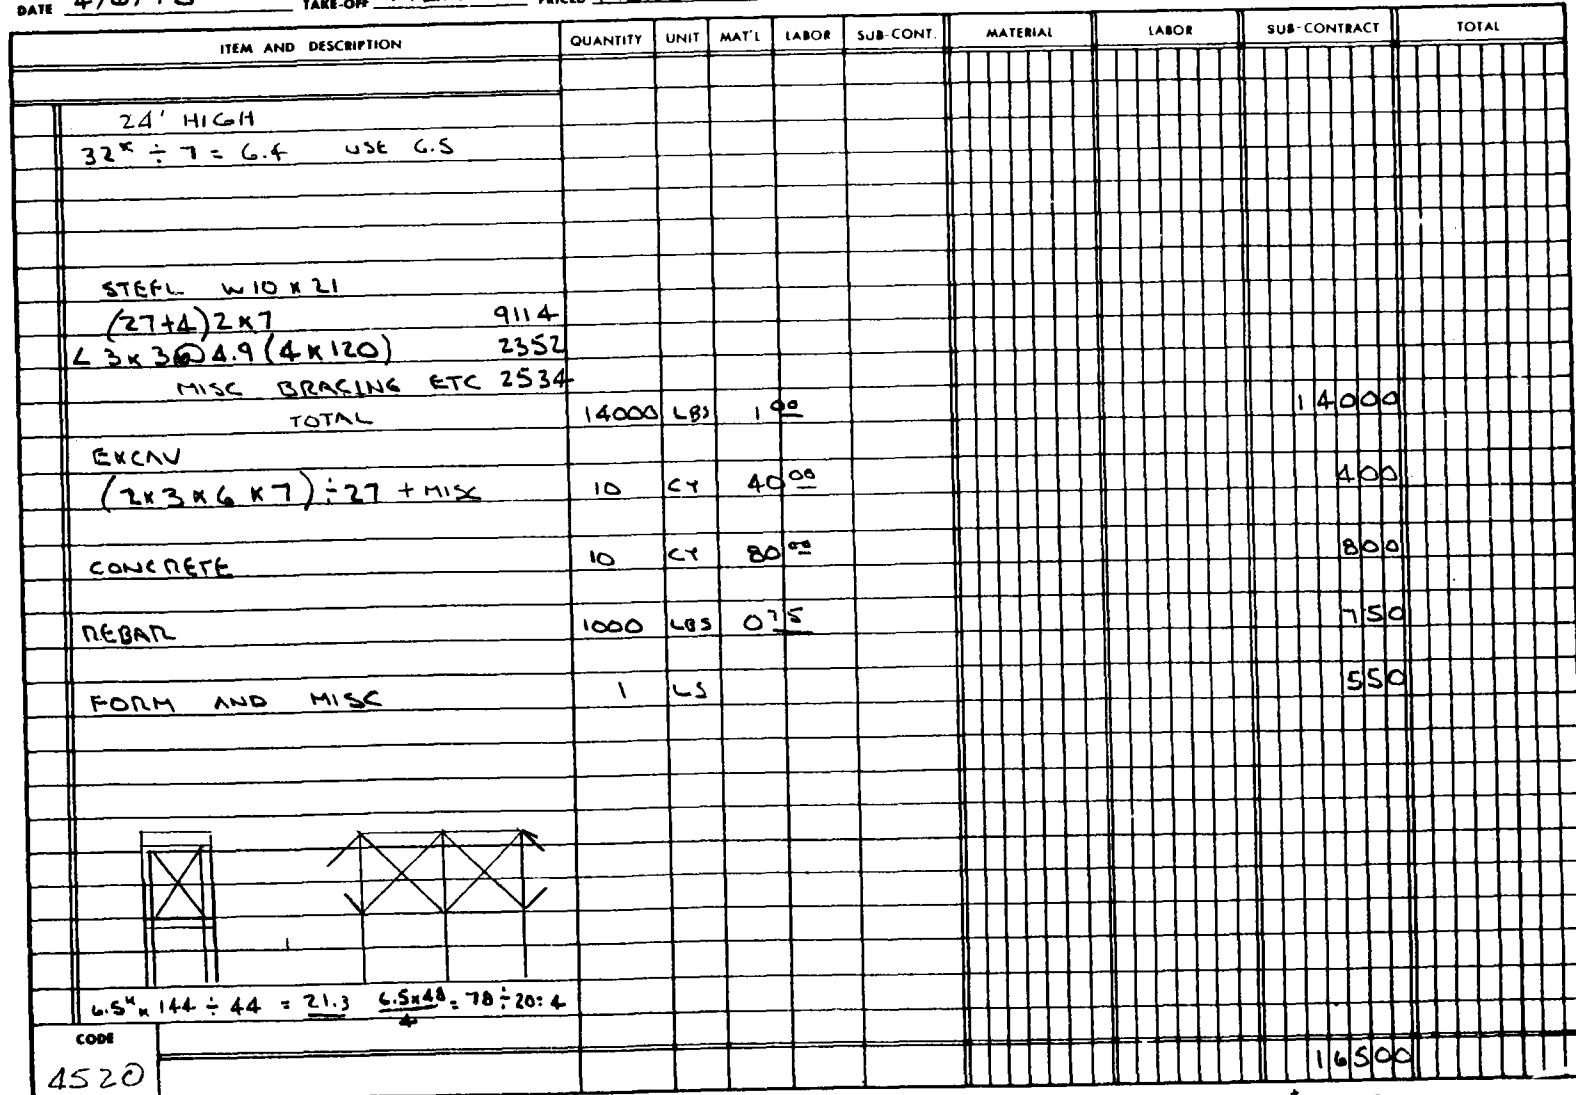 DATE TAKE-OFF PRICED
ITEM AND DESCRIPTION QUANTITY UNIT MAT'L LABOR SUB-CONT. MATERIAL LABOR SUB-CONTRACT TOTAL
24' HIGH
32ᴷ ÷ 7 = 6.4 USE 6.5
STEEL W10 x 21
(27+4)2x7 9114
L 3x3@4.9(4x120) 2352
MISC BRACING ETC 2534
TOTAL 14000 LBS 1 00 14000
EXCAV
(2x3x6x7)÷27 + MISC 10 CY 40 00 400
CONCRETE 10 CY 80 00 800
REBAR 1000 LBS 0 75 750
FORM AND MISC 1 LS 550
6.5ᴷ x 144 ÷ 44 = 21.3 6.5x48/4 = 78 ÷ 20 = 4
CODE
4520 16500